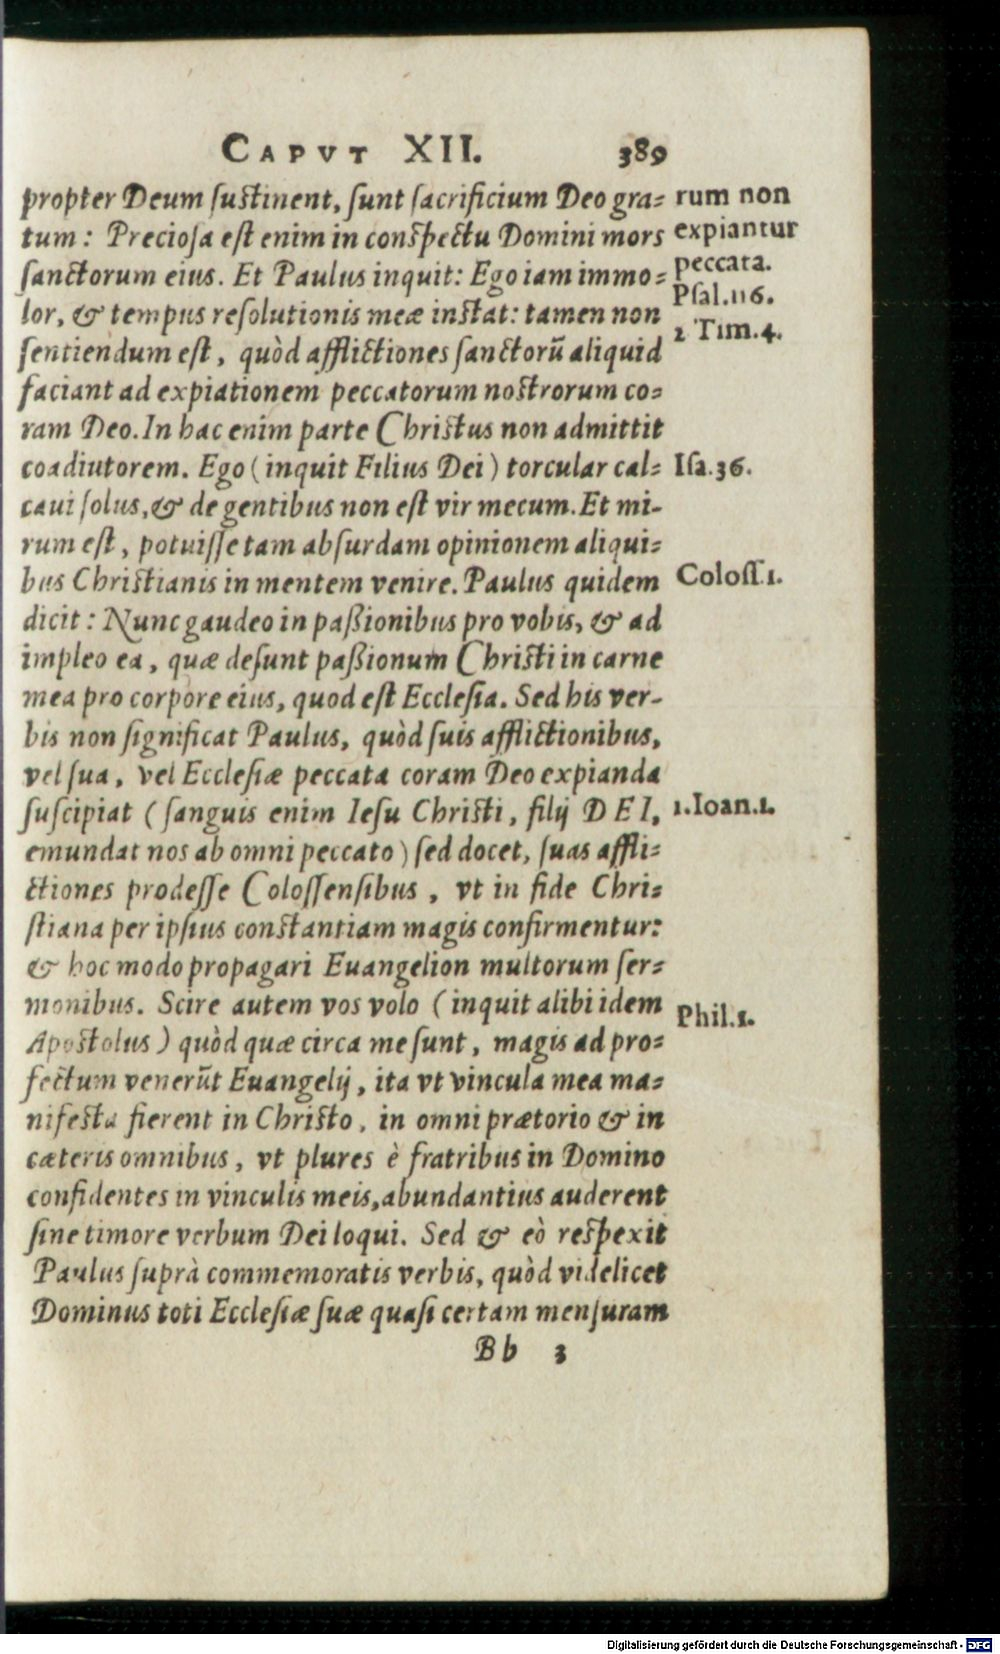 CAPVT XII. 389
propter Deum ſuſtinent, ſunt ſacrificium Deo gra-
tum: Precioſa eſt enim in conſpectu Domini mors
ſanctorum eius. Et Paulus inquit: Ego iam immo-
lor, & tempus reſolutionis meæ inſtat: tamen non
ſentiendum eſt, quòd afflictiones ſanctorũ aliquid
faciant ad expiationem peccatorum noſtrorum co-
ram Deo. In hac enim parte Chriſtus non admittit
coadiutorem. Ego (inquit Filius Dei) torcular cal-
caui ſolus, & de gentibus non eſt vir mecum. Et mi-
rum eſt, potuiſſe tam abſurdam opinionem aliqui-
bus Chriſtianis in mentem venire. Paulus quidem
dicit: Nunc gaudeo in paßionibus pro vobis, & ad
impleo ea, quæ deſunt paßionum Chriſti in carne
mea pro corpore eius, quod eſt Eccleſia. Sed his ver-
bis non ſignificat Paulus, quòd ſuis afflictionibus,
vel ſua, vel Eccleſiæ peccata coram Deo expianda
ſuſcipiat (ſanguis enim Ieſu Chriſti, filij DEI,
emundat nos ab omni peccato) ſed docet, ſuas affli-
ctiones prodeſſe Coloſſenſibus, vt in fide Chri-
ſtiana per ipſius conſtantiam magis confirmentur:
& hoc modo propagari Euangelion multorum ſer-
monibus. Scire autem vos volo (inquit alibi idem
Apoſtolus) quòd quæ circa me ſunt, magis ad pro-
fectum venerũt Euangelij, ita vt vincula mea ma-
nifeſta fierent in Chriſto, in omni prætorio & in
cæteris omnibus, vt plures è fratribus in Domino
confidentes in vinculis meis, abundantius auderent
ſine timore verbum Dei loqui. Sed & eò reſpexit
Paulus ſuprà commemoratis verbis, quòd videlicet
Dominus toti Eccleſiæ ſuæ quaſi certam menſuram
Bb 3
rum non
expiantur
peccata.
Pſal.116.
2 Tim.4.
Iſa.36.
Coloſſ.1.
1.Ioan.1.
Phil.1.
Digitalisierung gefördert durch die Deutsche Forschungsgemeinschaft - DFG